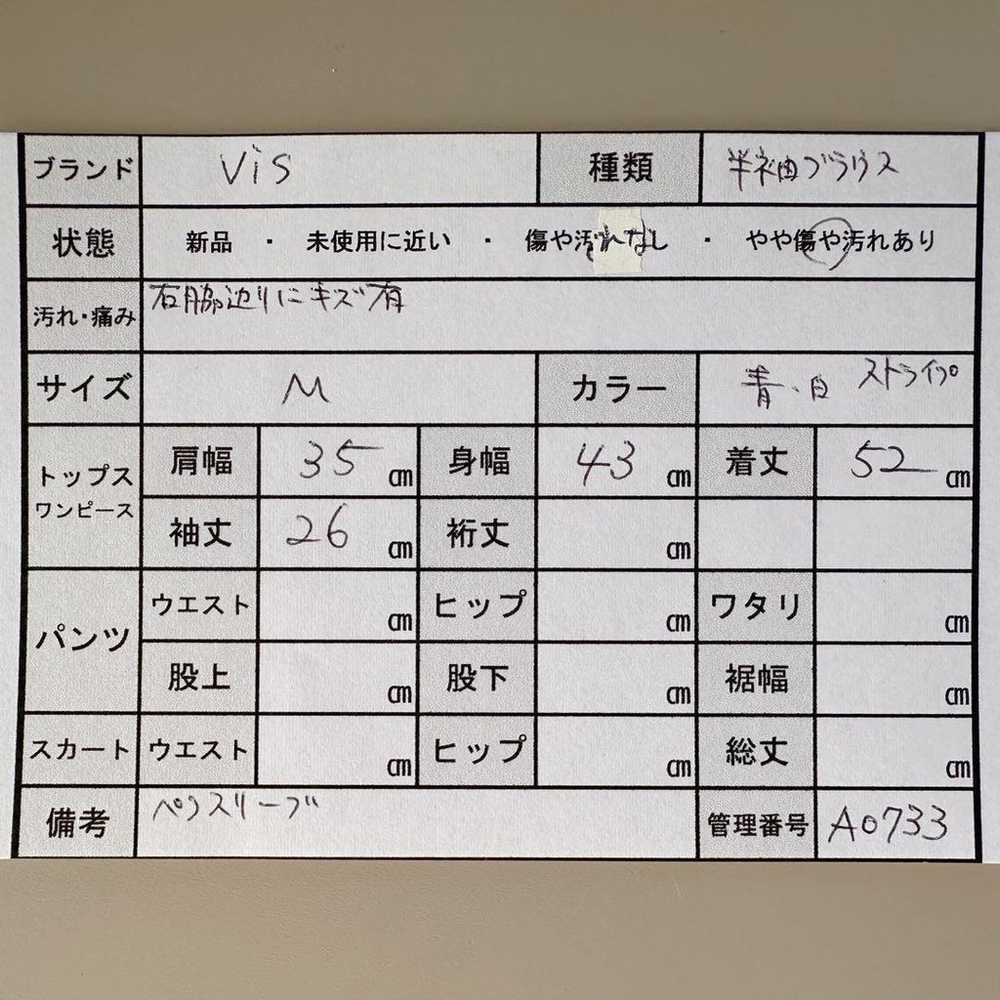 ブランド Vis 種類 半袖ブラウス
状態 新品 ・ 未使用に近い ・ 傷や汚れなし ・ やや傷や汚れあり
汚れ・痛み 右脇辺りにキズ有
サイズ M カラー 青・白 ストライプ
トップス ワンピース 肩幅 35 cm 身幅 43 cm 着丈 52 cm
袖丈 26 cm 裄丈 cm
パンツ ウエスト cm ヒップ cm ワタリ cm
股上 cm 股下 cm 裾幅 cm
スカート ウエスト cm ヒップ cm 総丈 cm
備考 ペンスリーブ 管理番号 A0733